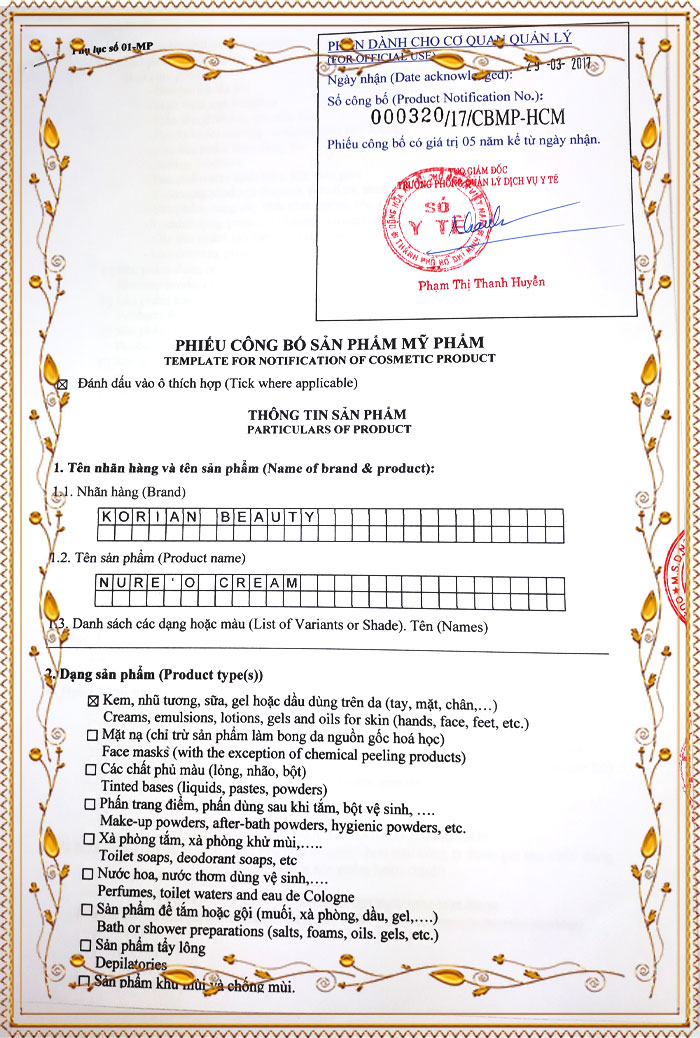 Phụ lục số 01-MP
PHẦN DÀNH CHO CƠ QUAN QUẢN LÝ
(FOR OFFICIAL USE)
Ngày nhận (Date acknowledged): 29 -03- 2017
Số công bố (Product Notification No.):
000320/17/CBMP-HCM
Phiếu công bố có giá trị 05 năm kể từ ngày nhận.
GIÁM ĐỐC
TRƯỞNG PHÒNG QUẢN LÝ DỊCH VỤ Y TẾ
SỞ
Y TẾ
THÀNH PHỐ HỒ CHÍ MINH
Phạm Thị Thanh Huyền
PHIẾU CÔNG BỐ SẢN PHẨM MỸ PHẨM
TEMPLATE FOR NOTIFICATION OF COSMETIC PRODUCT
Đánh dấu vào ô thích hợp (Tick where applicable)
THÔNG TIN SẢN PHẨM
PARTICULARS OF PRODUCT
1. Tên nhãn hàng và tên sản phẩm (Name of brand & product):
1.1. Nhãn hàng (Brand)
KORIAN BEAUTY
1.2. Tên sản phẩm (Product name)
NURE'O CREAM
1.3. Danh sách các dạng hoặc màu (List of Variants or Shade). Tên (Names)
2. Dạng sản phẩm (Product type(s))
Kem, nhũ tương, sữa, gel hoặc dầu dùng trên da (tay, mặt, chân,...)
Creams, emulsions, lotions, gels and oils for skin (hands, face, feet, etc.)
Mặt nạ (chỉ trừ sản phẩm làm bong da nguồn gốc hoá học)
Face masks (with the exception of chemical peeling products)
Các chất phủ màu (lỏng, nhão, bột)
Tinted bases (liquids, pastes, powders)
Phấn trang điểm, phấn dùng sau khi tắm, bột vệ sinh, ....
Make-up powders, after-bath powders, hygienic powders, etc.
Xà phòng tắm, xà phòng khử mùi,.....
Toilet soaps, deodorant soaps, etc
Nước hoa, nước thơm dùng vệ sinh,....
Perfumes, toilet waters and eau de Cologne
Sản phẩm để tắm hoặc gội (muối, xà phòng, dầu, gel,....)
Bath or shower preparations (salts, foams, oils. gels, etc.)
Sản phẩm tẩy lông
Depilatories
Sản phẩm khử mùi và chống mùi.